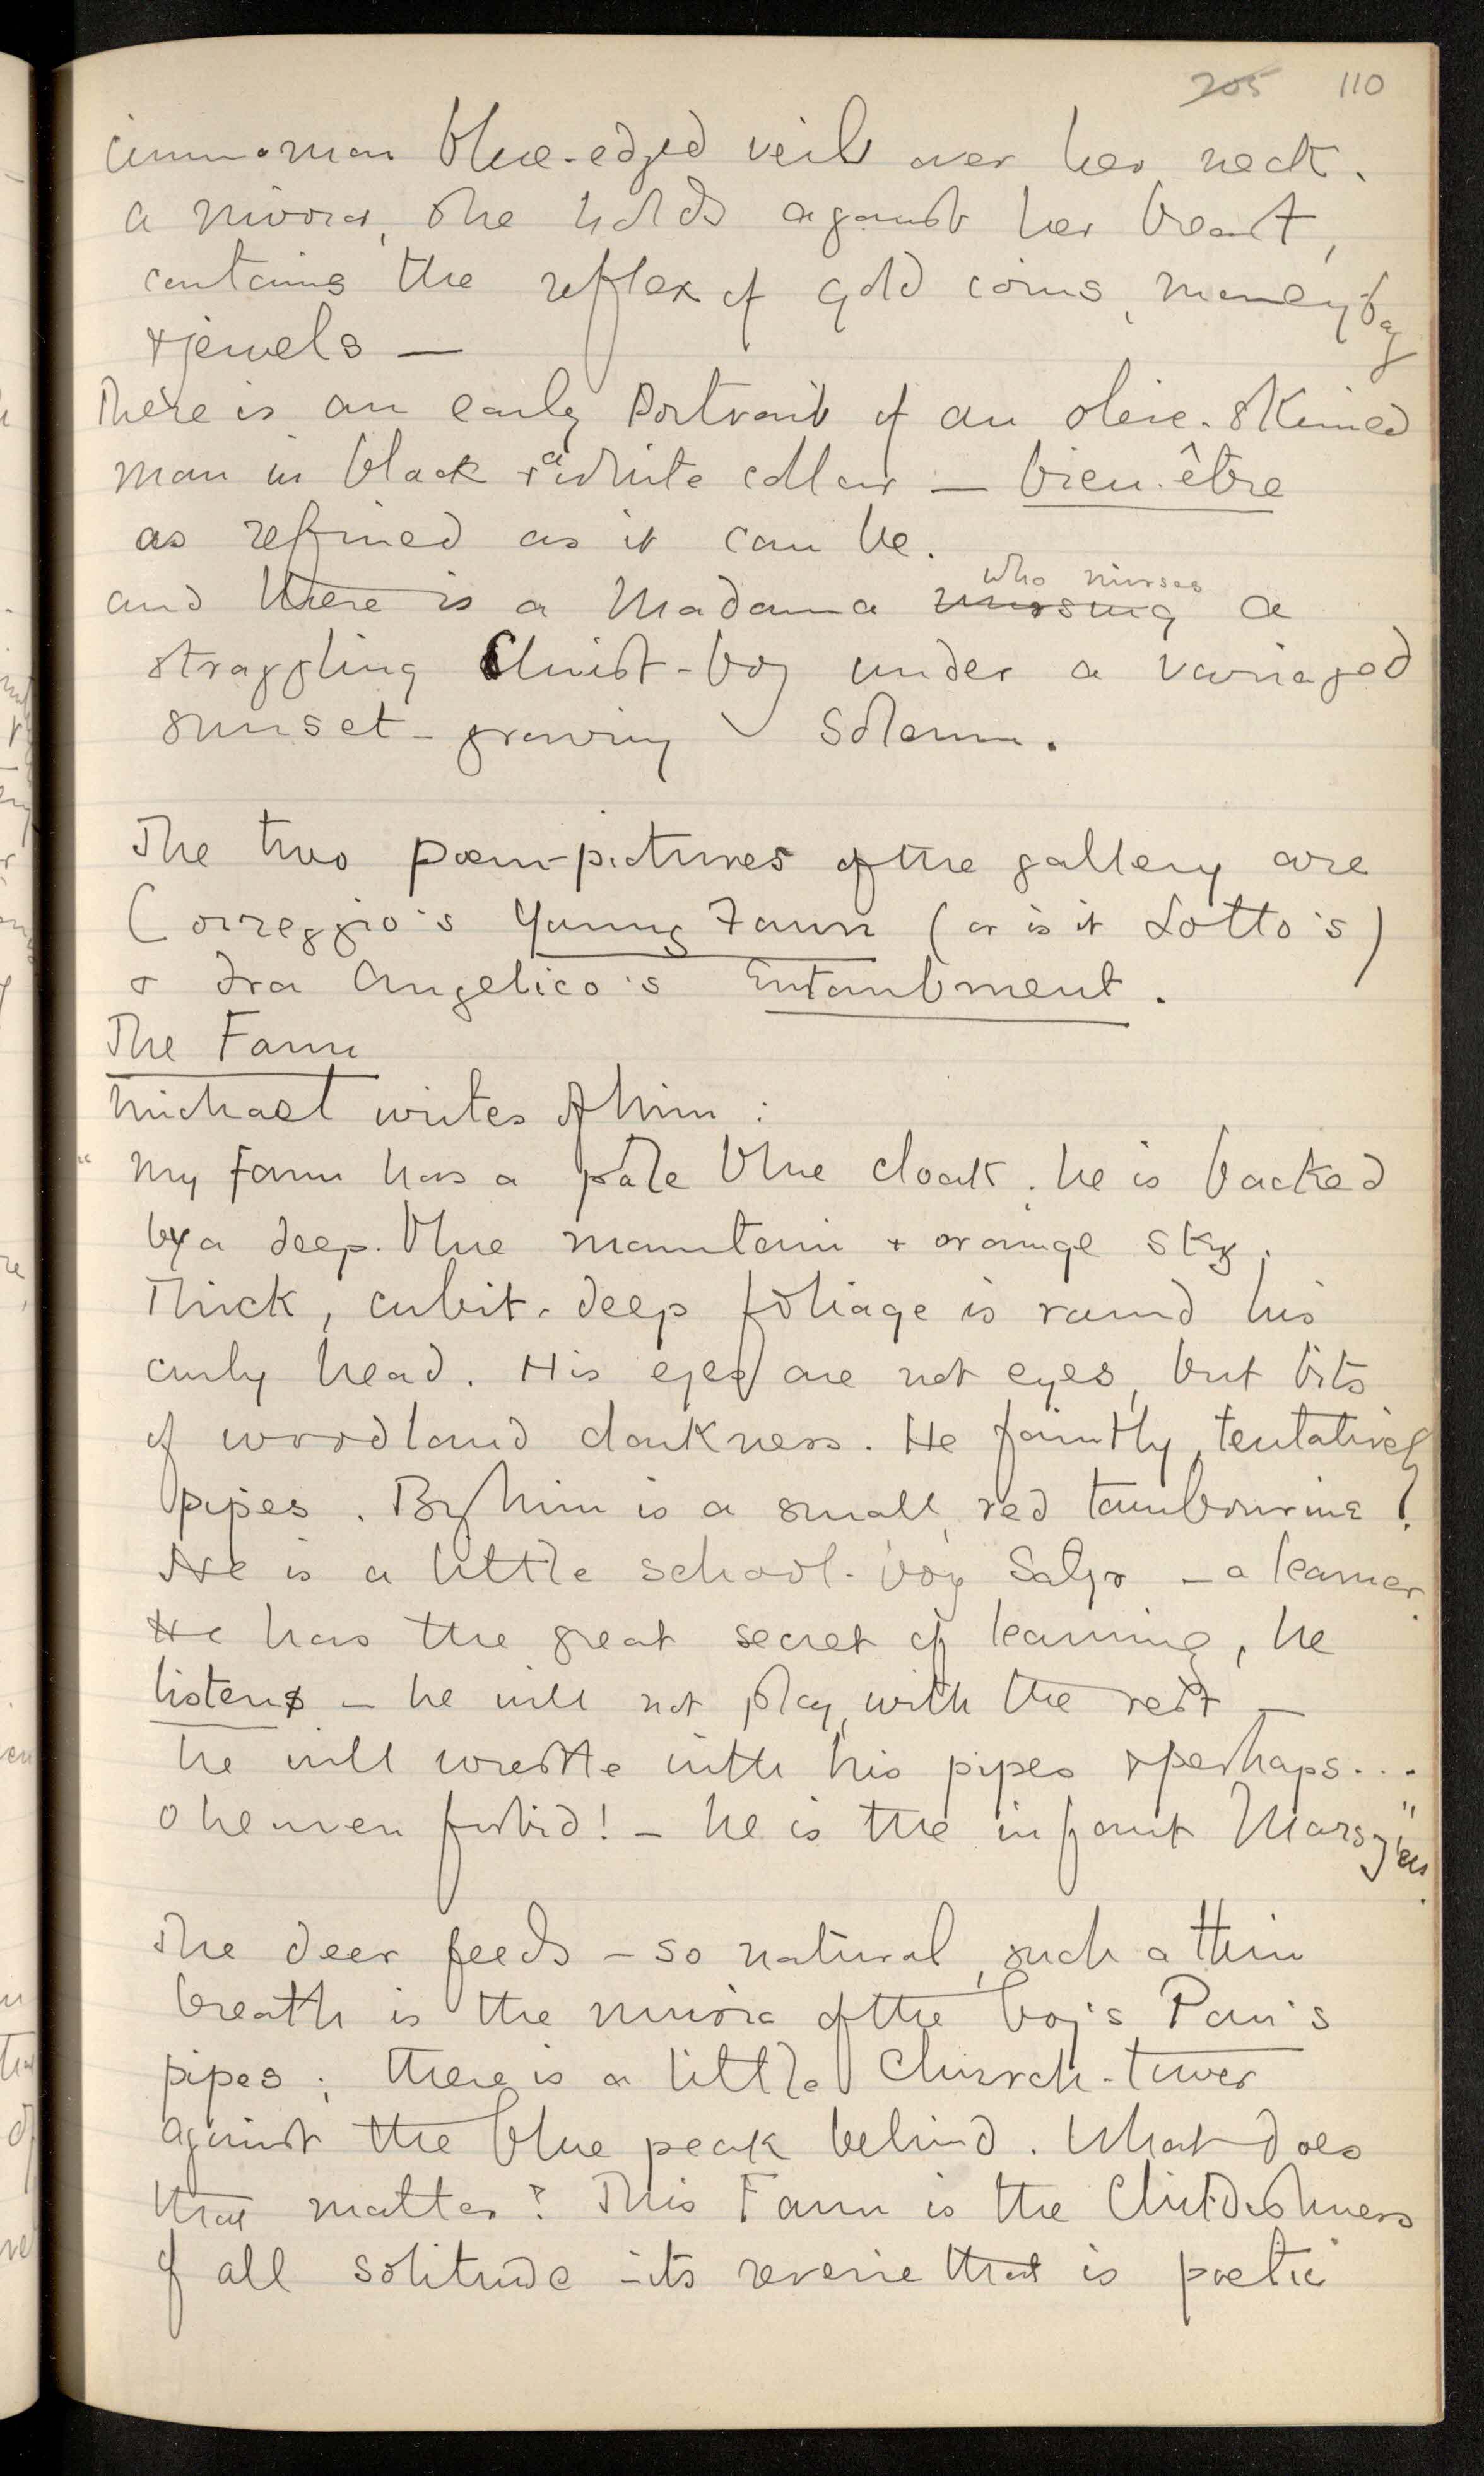 205 110
cinnamon blue-edged veil over her neck.
a mirror, she holds against her breast,
contains the reflex of gold coins, money-bag
& jewels —
There is an early Portrait of an olive-skinned
man in black & a white collar — bien-être
as refined as it can be.
and there is a Madonna nursing who nurses a
straggling Christ-boy under a variaged
sunset - growing solemn.
The two poem-pictures of the gallery are
Correggio's Young Faun (or is it Lotto's)
& Fra Angelico's Entombment.
The Faun
Michael writes of him:
"My Faun has a pale blue cloak. he is backed
by a deep-blue mountain & orange sky.
Thick, cubit-deep foliage is round his
curly head. His eyes are not eyes, but bits
of woodland darkness. He faintly, tentatively
pipes. By him is a small, red tambourine!
He is a little school-boy Satyr — a learner.
He has the great secret of learning, he
listens — he will not play, with the rest —
he will wrestle with his pipes & perhaps...
O heaven forbid! — he is the infant Marsyas".
The deer feeds — so natural, such a thin
breath is the music of the boy's Pan's
pipes; there is a little Church-tower
against the blue peak behind. What does
that matter? This Faun is the Childishness
of all solitude — its reverie that is poetic